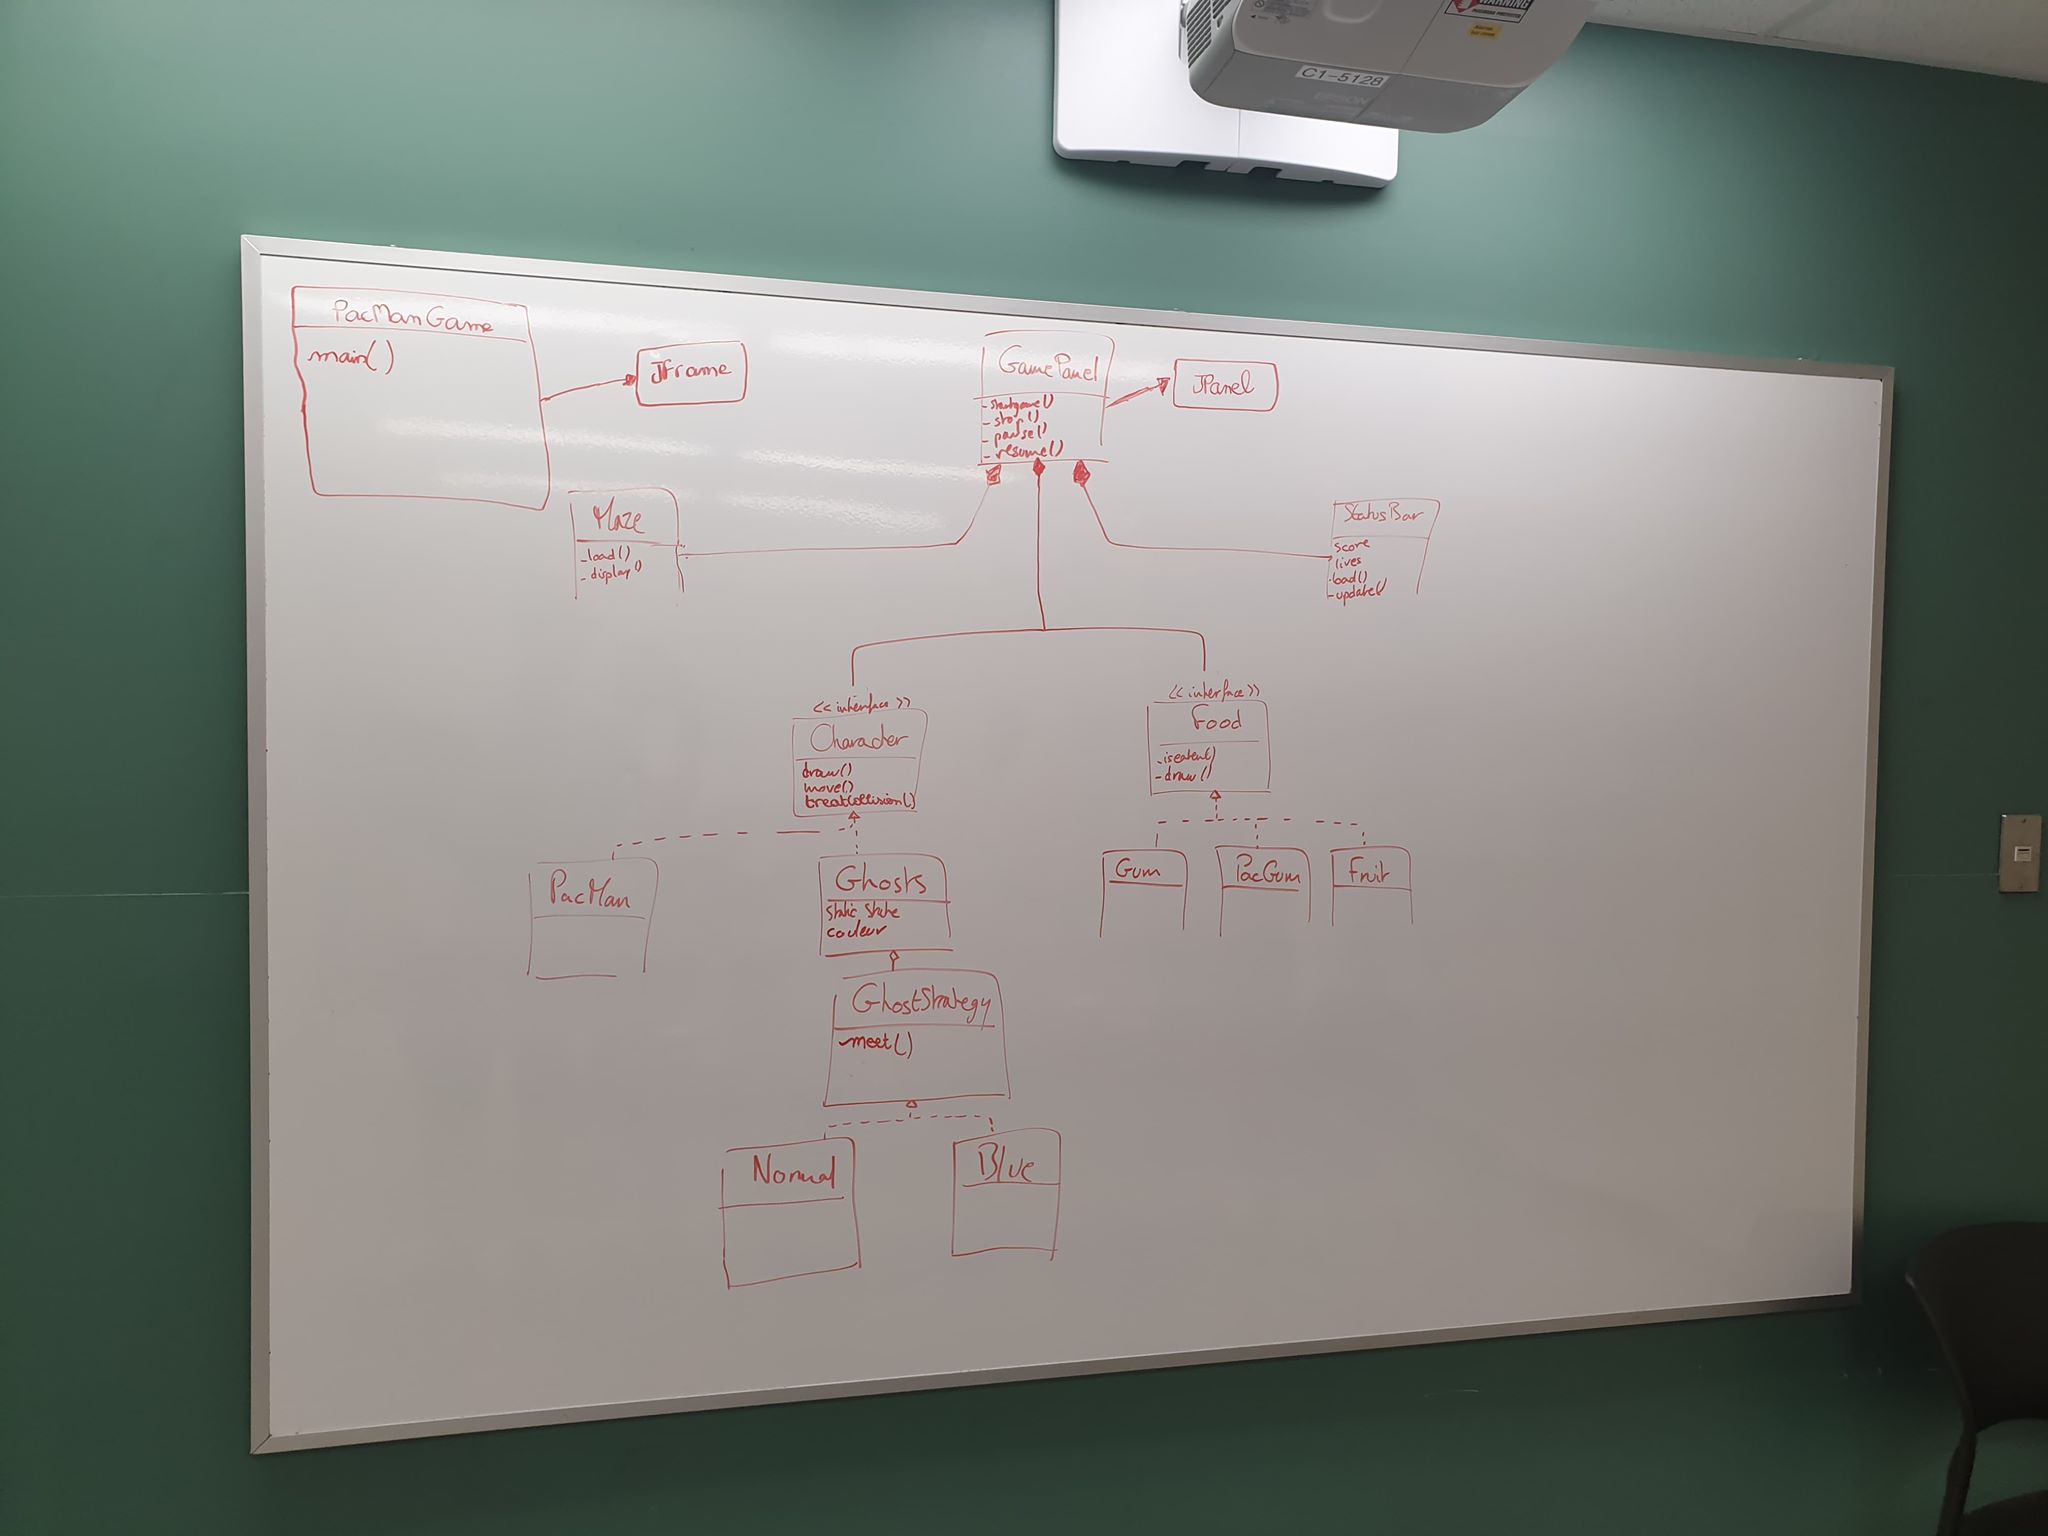 WARNING
C1-5128
EPSON
PacManGame
main()
JFrame
GamePanel
- startgame()
- stop()
- pause()
- resume()
JPanel
Maze
- load()
- display()
StatusBar
score
lives
- load()
- update()
<<interface>>
Character
draw()
move()
treatCollision()
<<interface>>
Food
- iseaten()
- draw()
PacMan
Ghosts
static state
couleur
Gum
PacGum
Fruit
GhostStrategy
- meet()
Normal
Blue